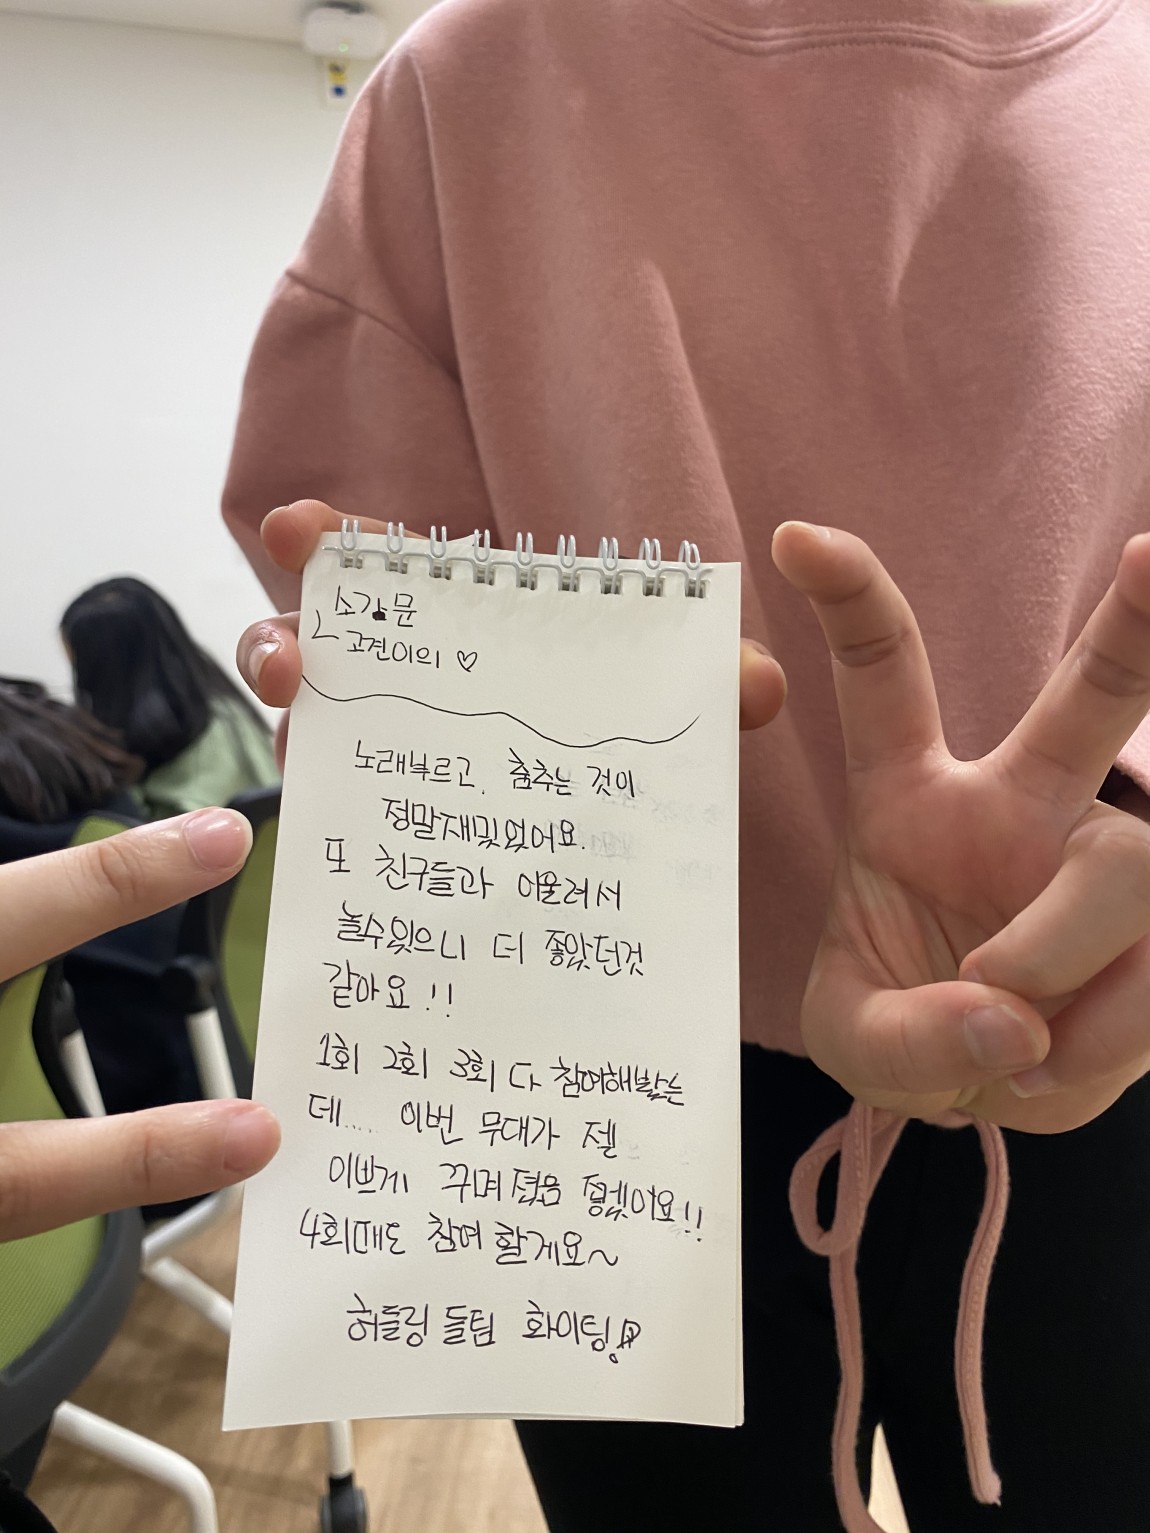 소감문
ㄴ 고견이의 ♡
노래부르고, 춤추는 것이
정말재밌었어요.
또 친구들과 어울려서
놀수있으니 더 좋았던것
같아요!!
1회 2회 3회 다 참여해봤는
데..... 이번 무대가 젤
이쁘게 꾸며졌음 정했어요!!
4회때도 참여 할게요~
허들링 들팀 화이팅!